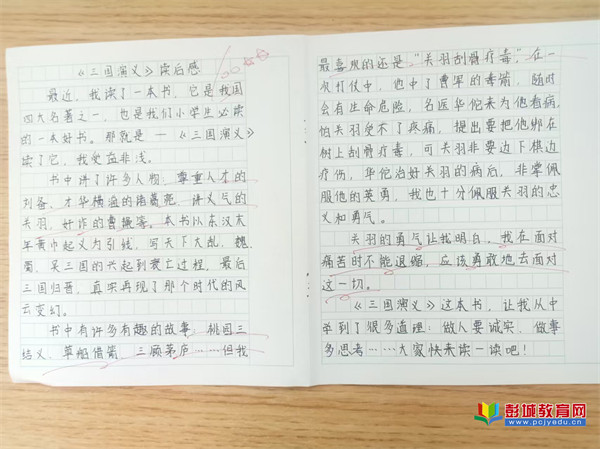 《三国演义》读后感
100
最近，我读了一本书，它是我国
四大名著之一，也是我们小学生必读
的一本好书。那就是一《三国演义》
读了它，我受益非浅。
书中讲了许多人物，尊重人才的
刘备，才华横溢的诸葛亮，讲义气的
关羽，奸诈的曹操等。本书以东汉末
年黄巾起义为引线，写天下大乱，魏
蜀、吴三国的兴起到衰亡过程，最后
三国归晋，真实再现了那个时代的风
云变幻。
书中有许多有趣的故事，桃园三
结义、草船借箭、三顾茅庐……但我
最喜欢的还是“关羽刮骨疗毒”在一
次打仗中，他中了曹军的毒箭，随时
会有生命危险，名医华佗来为他看病，
怕关羽受不了疼痛，提出要把他绑在
树上刮骨疗毒，可关羽非要边下棋边
疗伤，华佗治好关羽的病后，非常佩
服他的英勇，我也十分佩服关羽的忠
义和勇气。
关羽的勇气让我明白，我在面对
痛苦时不能退缩，应该勇敢地去面对
这一切。
《三国演义》这本书，让我从中
学到了很多道理：做人要诚实，做事
多思考……大家快来读一读吧！
彭城教育网
www.pcjyedu.cn